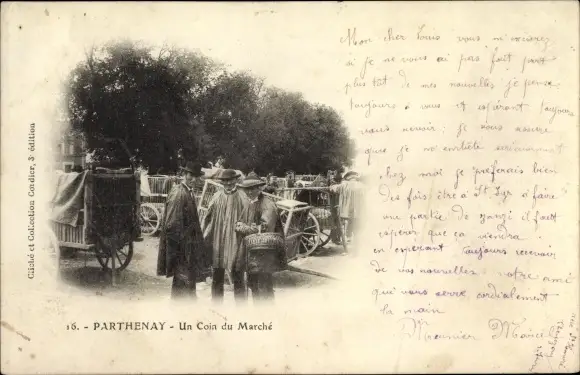 Mon cher Louis vous m'excusez
si je ne vous ai pas fait part
plus tôt de mes nouvelles je pense
toujours à vous et espérant toujours
vous revoir ; je vous assure
que je m'embête sérieusement
chez moi je préférais bien
des fois être à St Cyr à faire
une partie de zanzi il faut
espérer que ça viendra
en espérant toujours recevoir
de vos nouvelles votre ami
qui vous serre cordialement
la main
Meunier Marcel
Cliché et Collection Cordier, 3e édition
16. - PARTHENAY - Un Coin du Marché